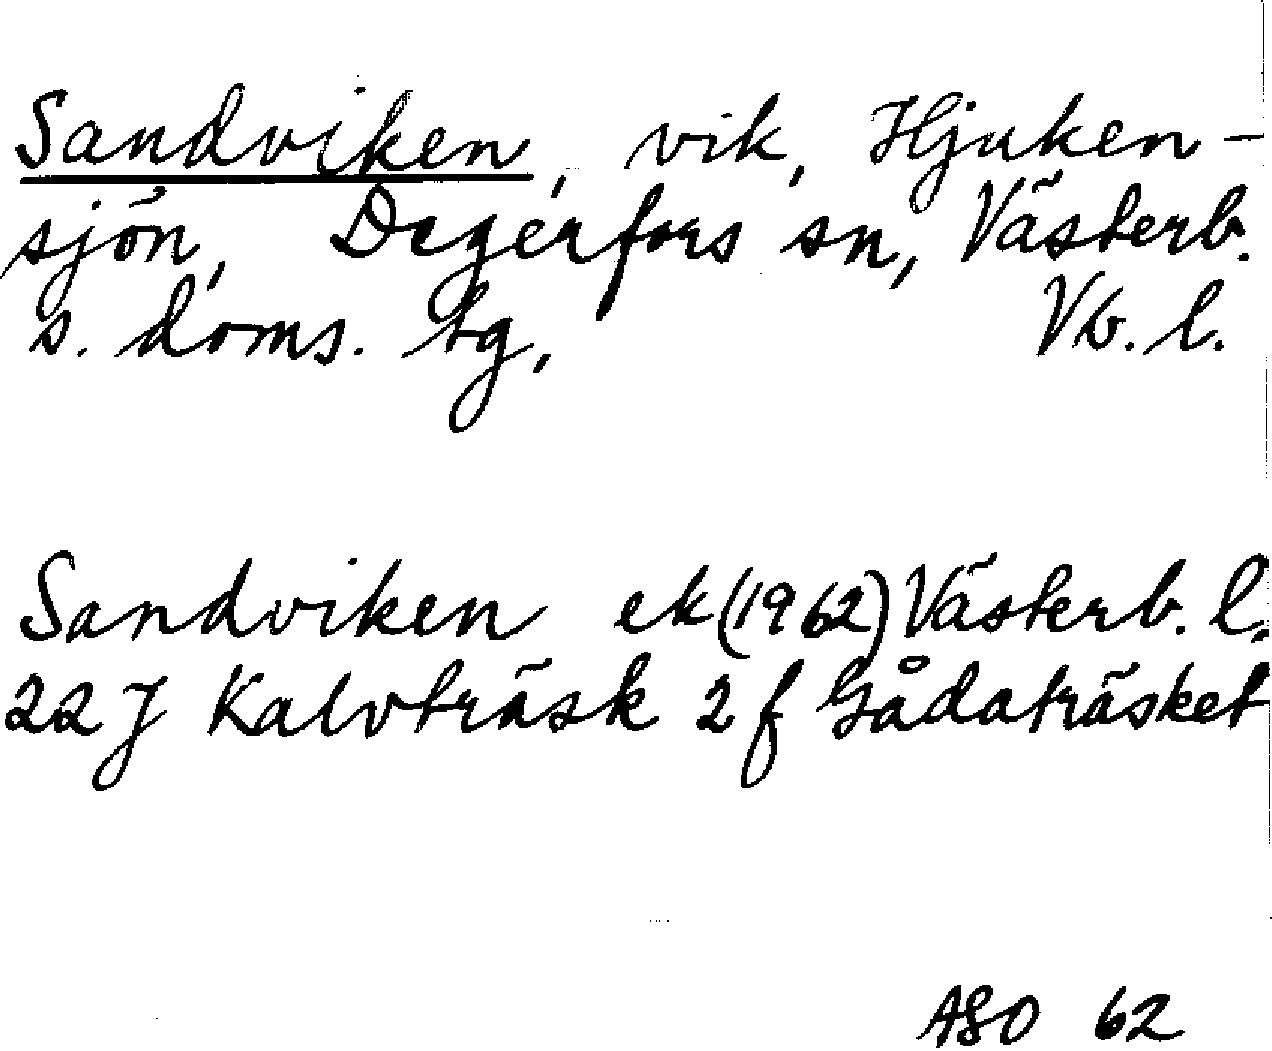 Sandviken, vik, Hjuken-
sjön, Degerfors sn, Västerb.
s. doms. tg, Vb. l.
Sandviken ek (1962) Västerb. l.
22 J Kalvträsk 2 f Gådaträsket
ASO 62